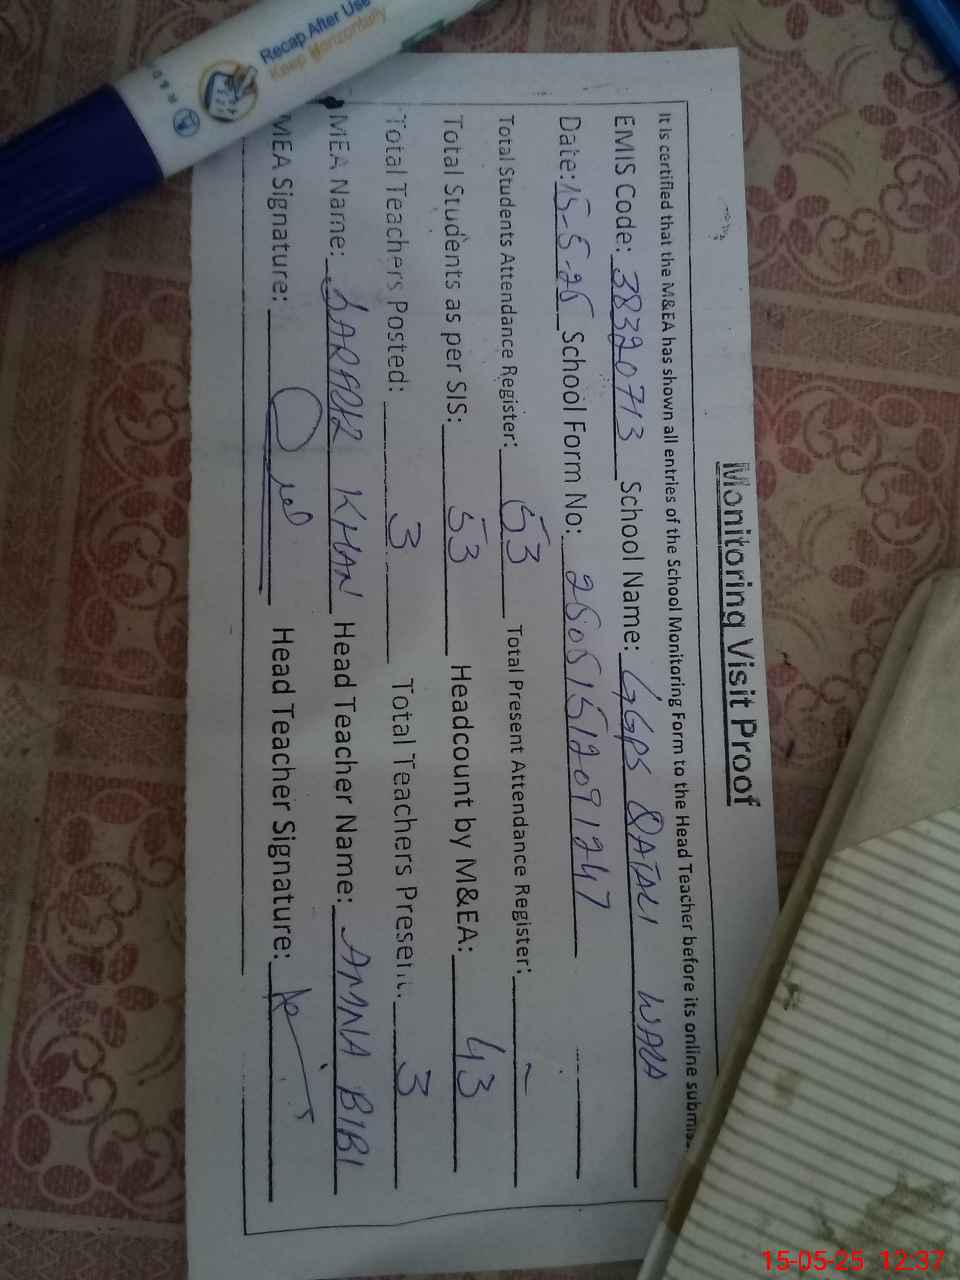 Recap After Use
Keep Horizontally
Monitoring Visit Proof
It is certified that the M&EA has shown all entries of the School Monitoring Form to the Head Teacher before its online submis
EMIS Code: 38320713 School Name: GGPS QATALI WALA
Date: 15-5-25 School Form No: 25051512091247
Total Students Attendance Register: 53 Total Present Attendance Register: -
Total Students as per SIS: 53 Headcount by M&EA: 43
Total Teachers Posted: 3 Total Teachers Present: 3
MEA Name: KHAN Head Teacher Name: AMNA BIBI
MEA Signature: Head Teacher Signature:
15-05-25 12:37